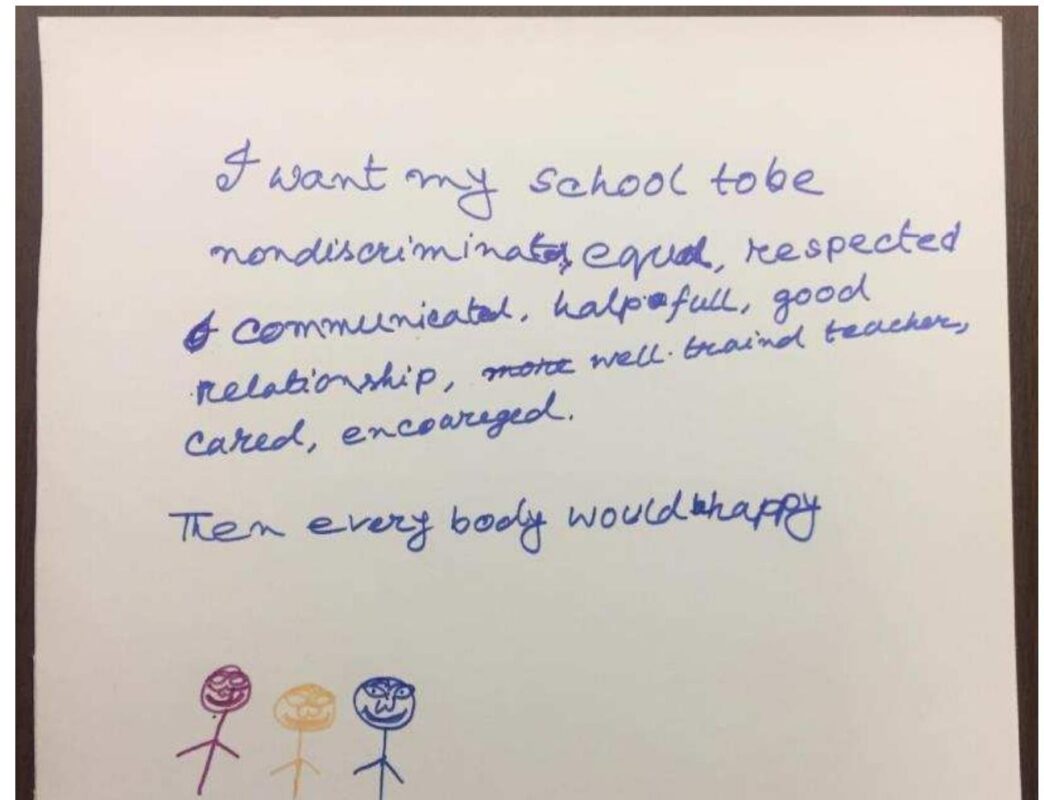 I want my school tobe
nondiscriminated, equal, respected
communicated, halpofull, good
relationship, more well traind teacher,
cared, encoareged.
Then every body would happy